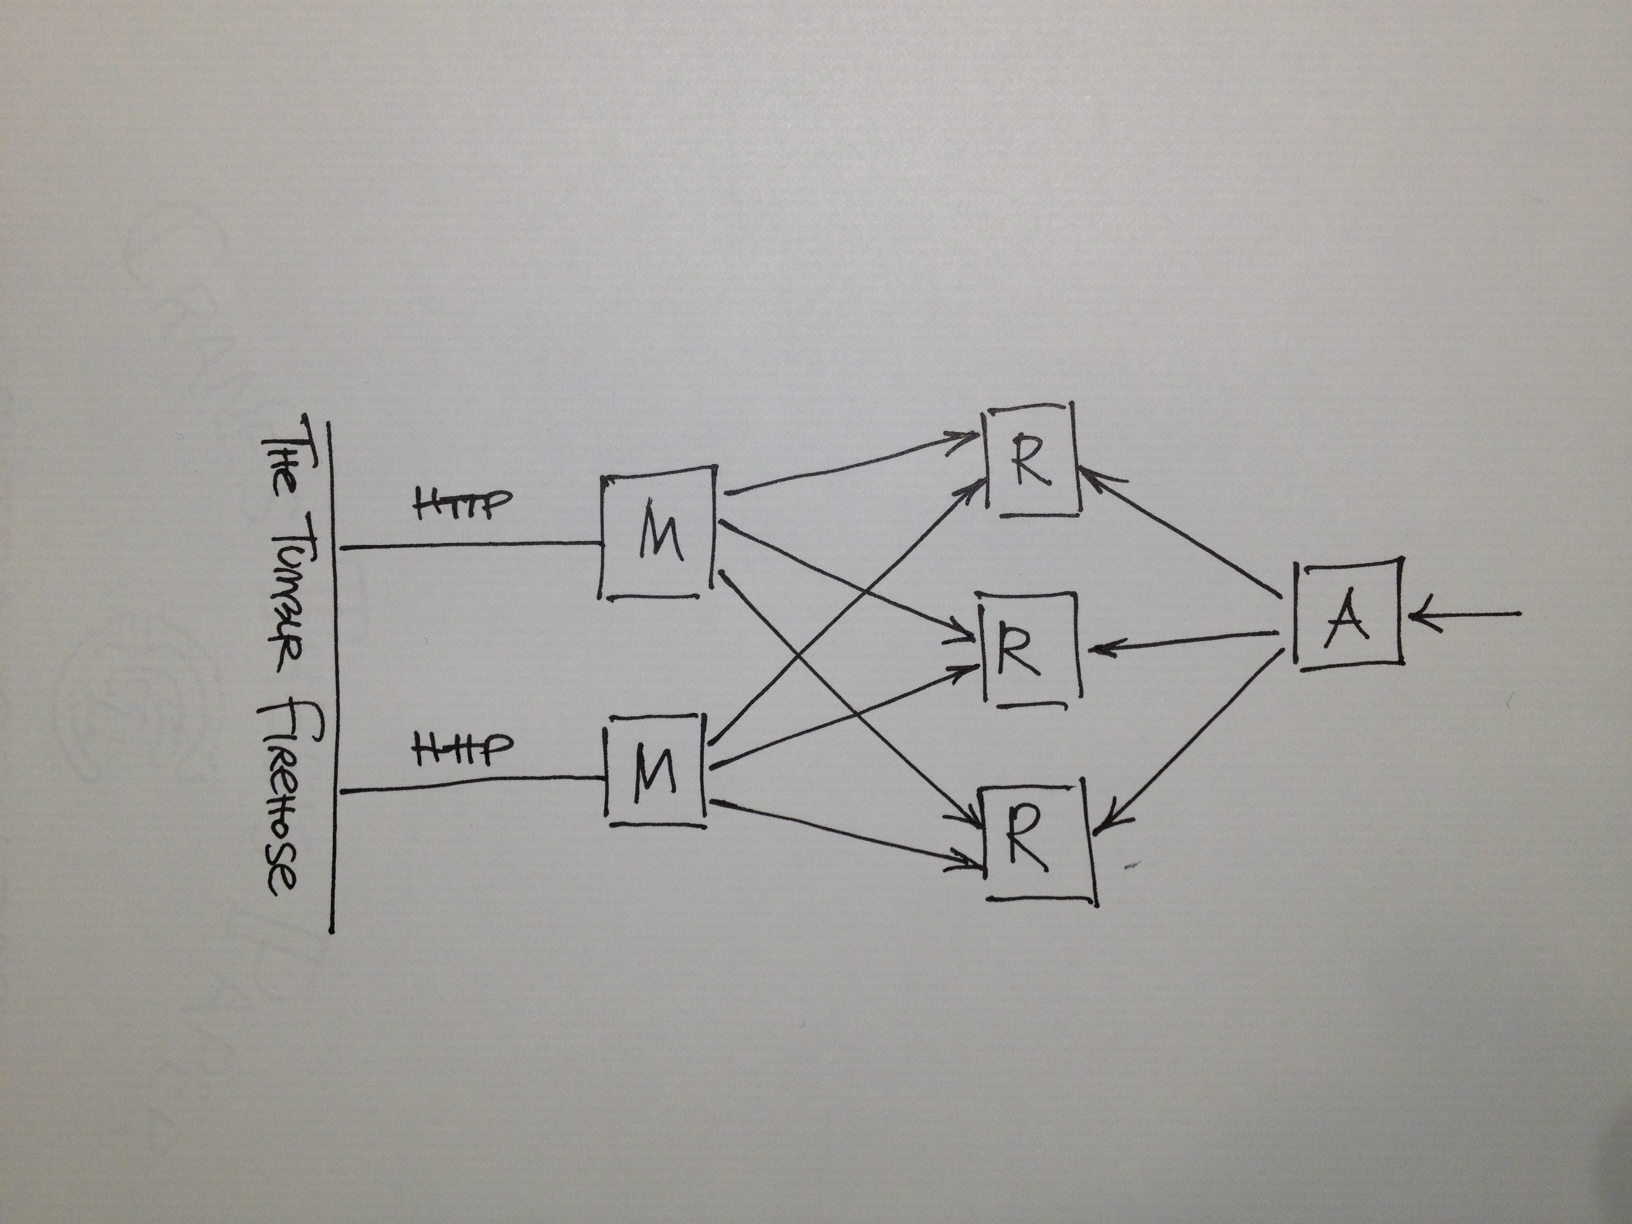 THE TUMBLR FIREHOSE
HTTP
HTTP
M
M
R
R
R
A